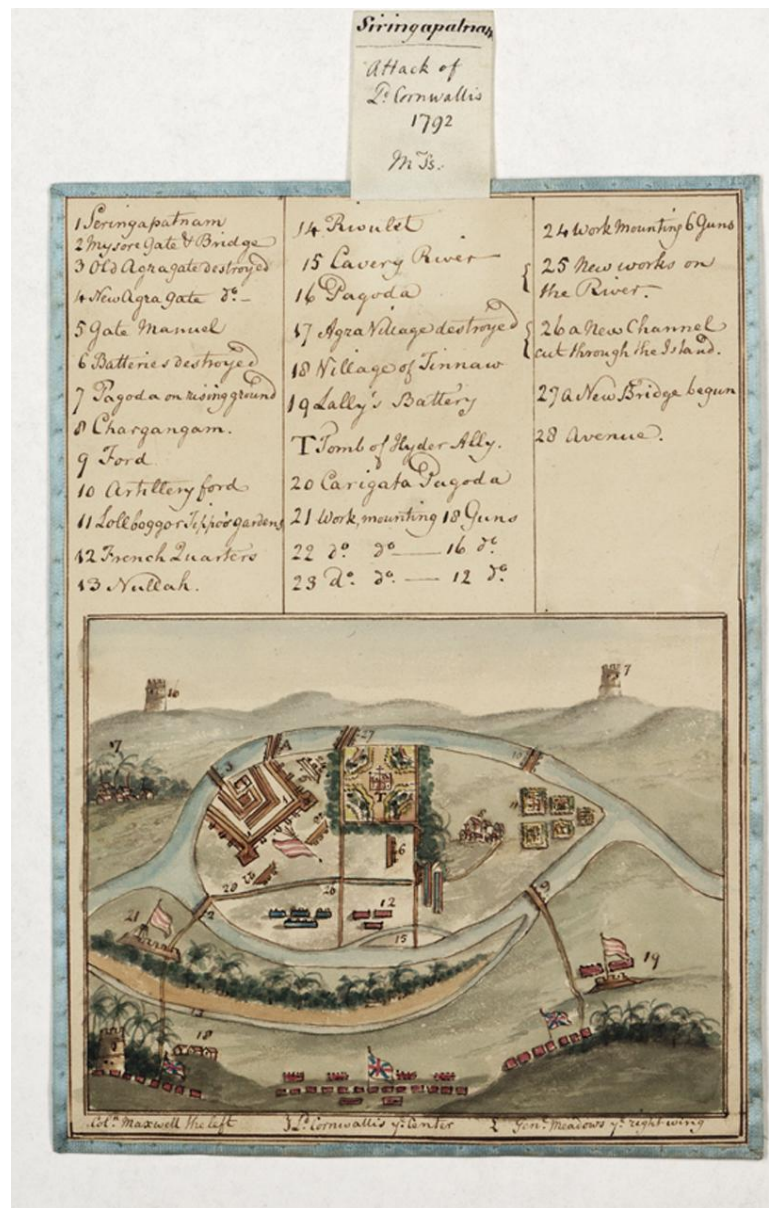 Siringapatnam
Attack of
Ld. Cornwallis
1792
1 Seringapatnam
2 Mysore Gate & Bridge
3 Old Agra gate destroyed
4 New Agra Gate do. —
5 Gate Manuel
6 Batteries destroyed
7 Pagoda on rising ground
8 Chargangam.
9 Ford
10 Artillery ford
11 Lollboggor Tippo's gardens
12 French Quarters
13 Nullah.
14 Rivulet
15 Cavery River
16 Pagoda
17 Agra Village destroyed
18 Village of Tinnaw
19 Lally's Battery
T Tomb of Hyder Ally.
20 Carigata Pagoda
21 Work, mounting 18 Guns
22 do. do. — 16 do.
23 do. do. — 12 do.
24 Work Mounting 6 Guns
25 New works on
the River.
26 a New Channel
cut through the Island.
27 A New Bridge begun
28 Avenue.
16
7
17
3
4
27
10
T
11
6
22
20
26
12
2
9
21
15
19
13
18
Coln. Maxwell the left
Ld. Cornwallis ye. Center
Genl. Meadows ye. right wing